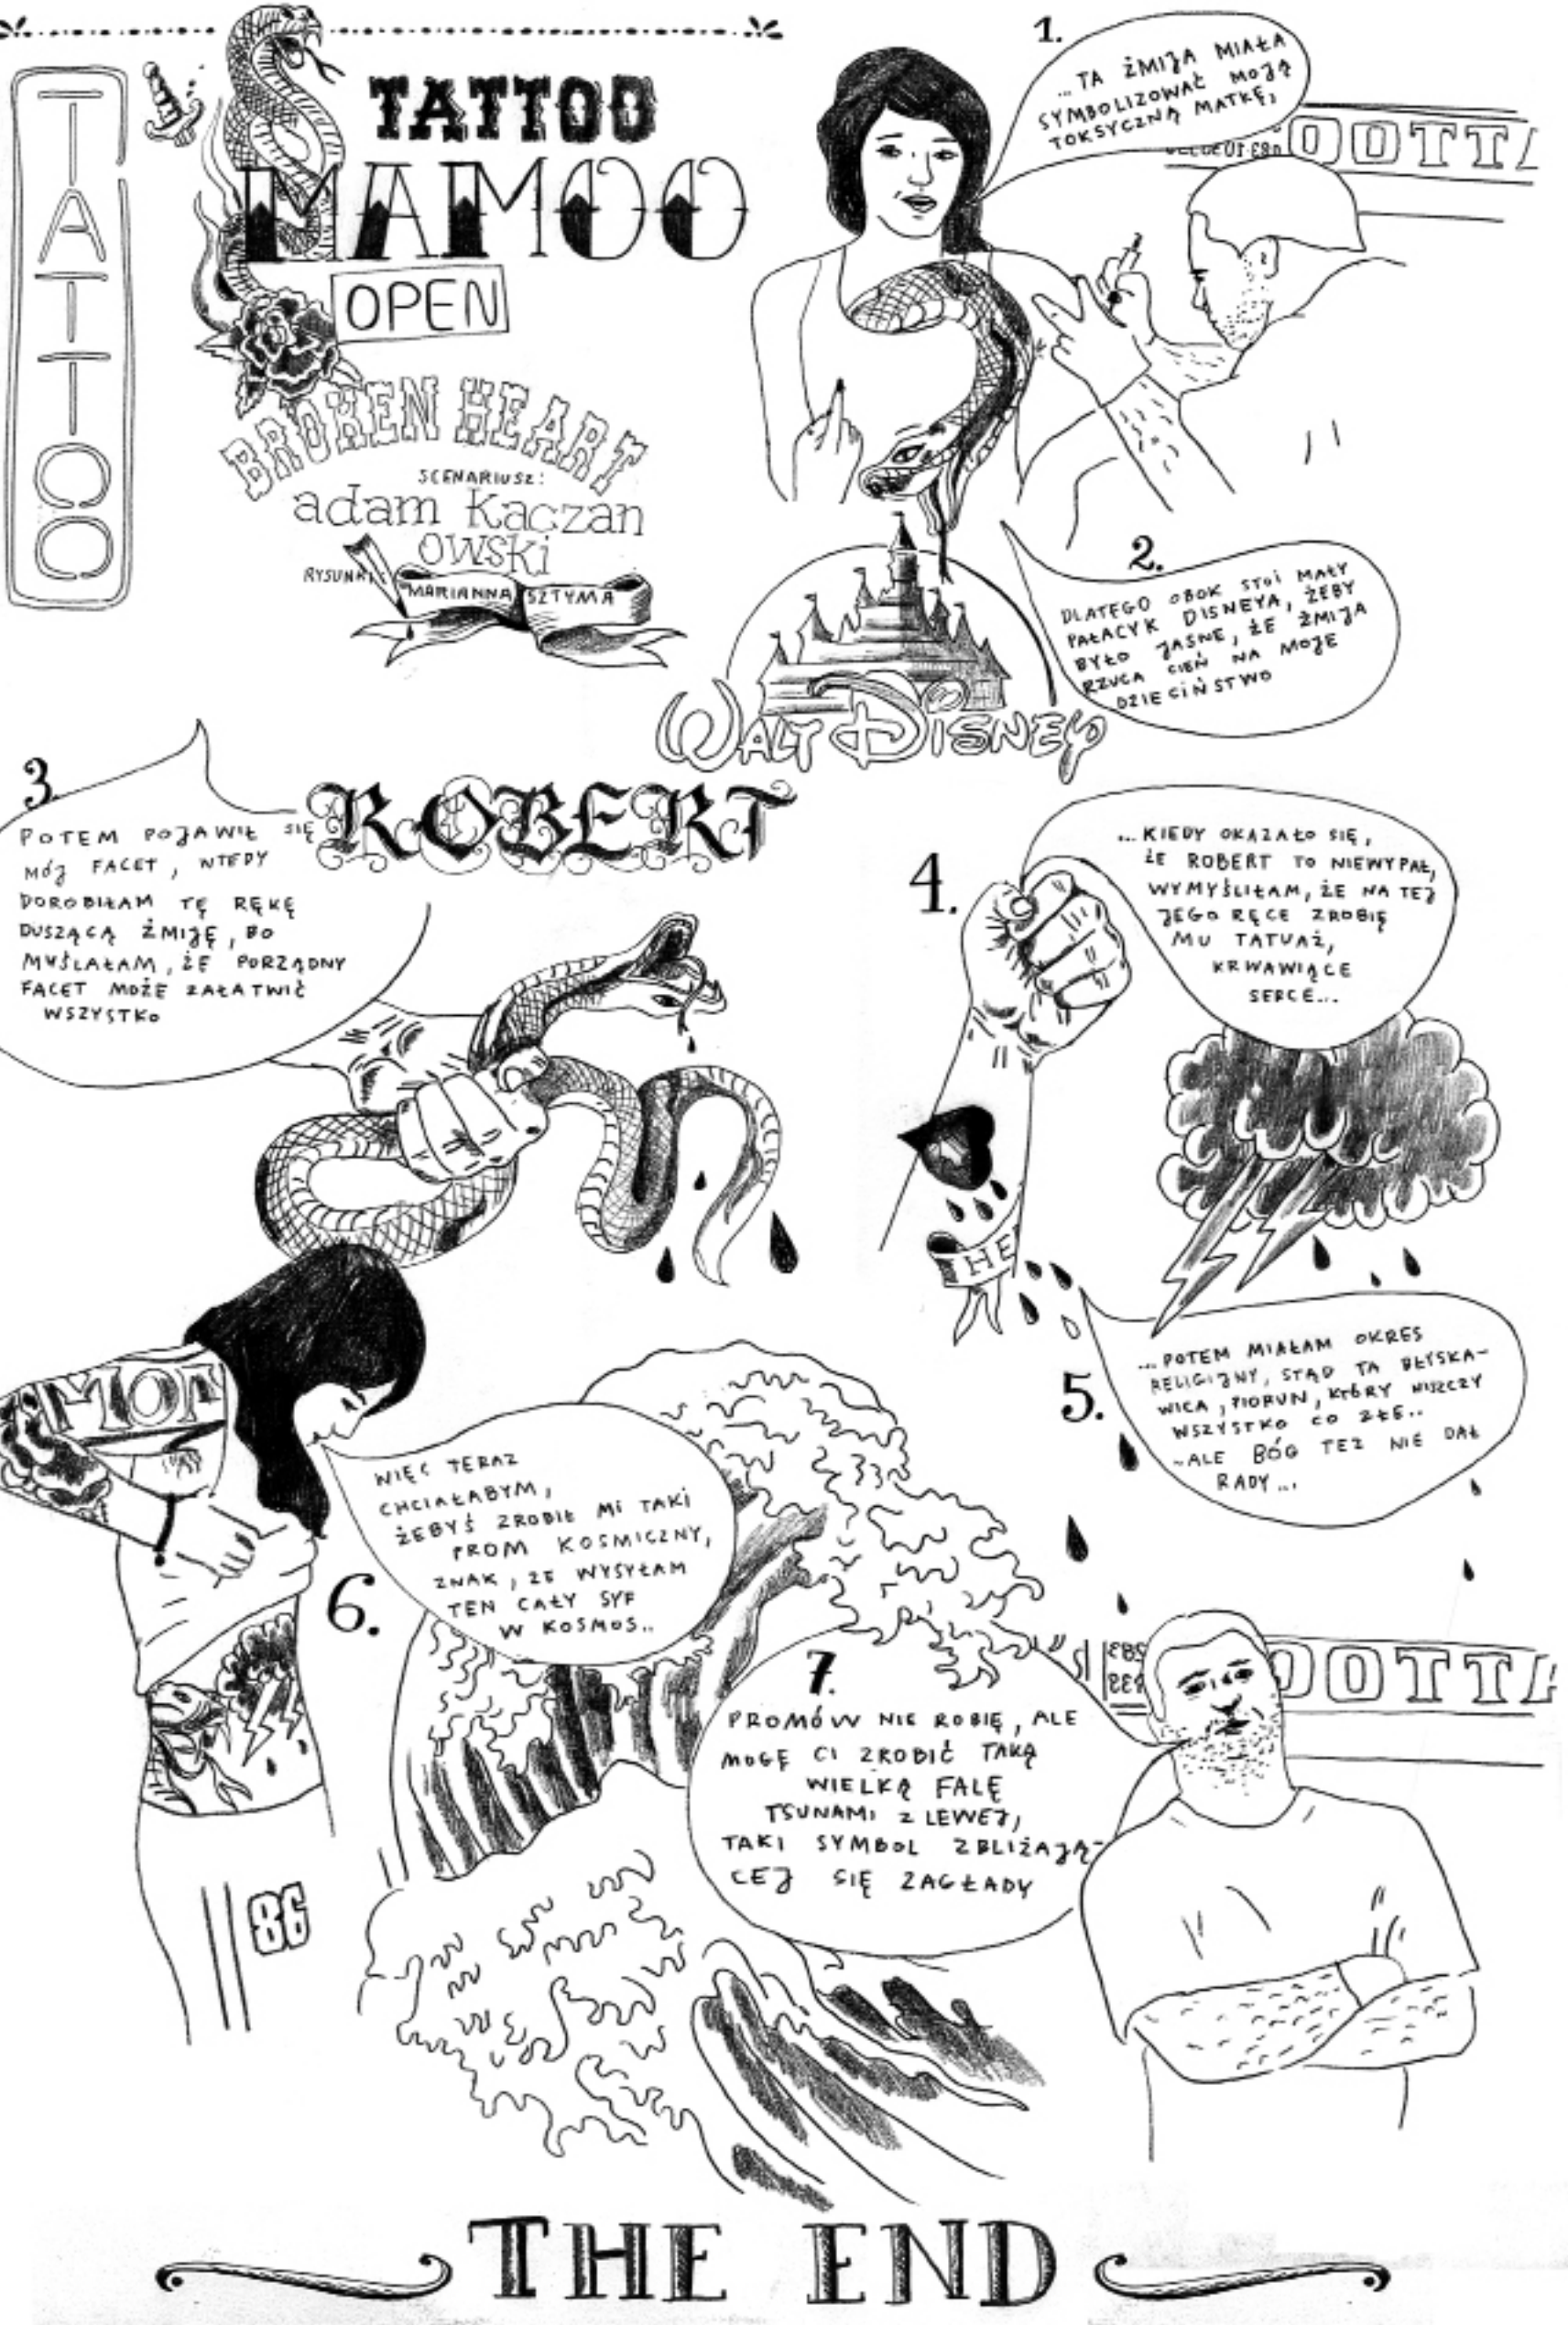 TATTOO
TATTOO
MAMOO
OPEN
BROKEN HEART
SCENARIUSZ:
adam Kaczan
owski
RYSUNKI:
MARIANNA SZTYMA
1.
...TA ŻMIJA MIAŁA
SYMBOLIZOWAŁ MOJĄ
TOKSYCZNĄ MATKĘ,
OOTTA
2.
DLATEGO OBOK STOI MAŁY
PAŁACYK DISNEYA, ŻEBY
BYŁO JASNE, ŻE ŻMIJA
RZUCA CIEŃ NA MOJE
DZIECIŃSTWO
WALT DISNEY
3.
POTEM POJAWIŁ SIĘ
MÓJ FACET, WTEDY
DOROBIŁAM TĘ RĘKĘ
DUSZĄCĄ ŻMIJĘ, BO
MYŚLAŁAM, ŻE PORZĄDNY
FACET MOŻE ZAŁATWIĆ
WSZYSTKO
ROBERT
4.
...KIEDY OKAZAŁO SIĘ,
ŻE ROBERT TO NIEWYPAŁ,
WYMYŚLIŁAM, ŻE NA TEJ
JEGO RĘCE ZROBIĘ
MU TATUAŻ,
KRWAWIĄCE
SERCE...
HE
5.
...POTEM MIAŁAM OKRES
RELIGIJNY, STĄD TA BŁYSKA-
WICA, PIORUN, KTÓRY NISZCZY
WSZYSTKO CO ZŁE..
~ALE BÓG TEŻ NIE DAŁ
RADY...
AMOR
86
6.
WIĘC TERAZ
CHCIAŁABYM,
ŻEBYŚ ZROBIŁ MI TAKI
PROM KOSMICZNY,
ZNAK, ŻE WYSYŁAM
TEN CAŁY SYF
W KOSMOS..
7.
PROMÓW NIE ROBIĘ, ALE
MOGĘ CI ZROBIĆ TAKĄ
WIELKĄ FALĘ
TSUNAMI Z LEWEJ,
TAKI SYMBOL ZBLIŻAJĄ-
CEJ SIĘ ZAGŁADY
OOTTA
THE END